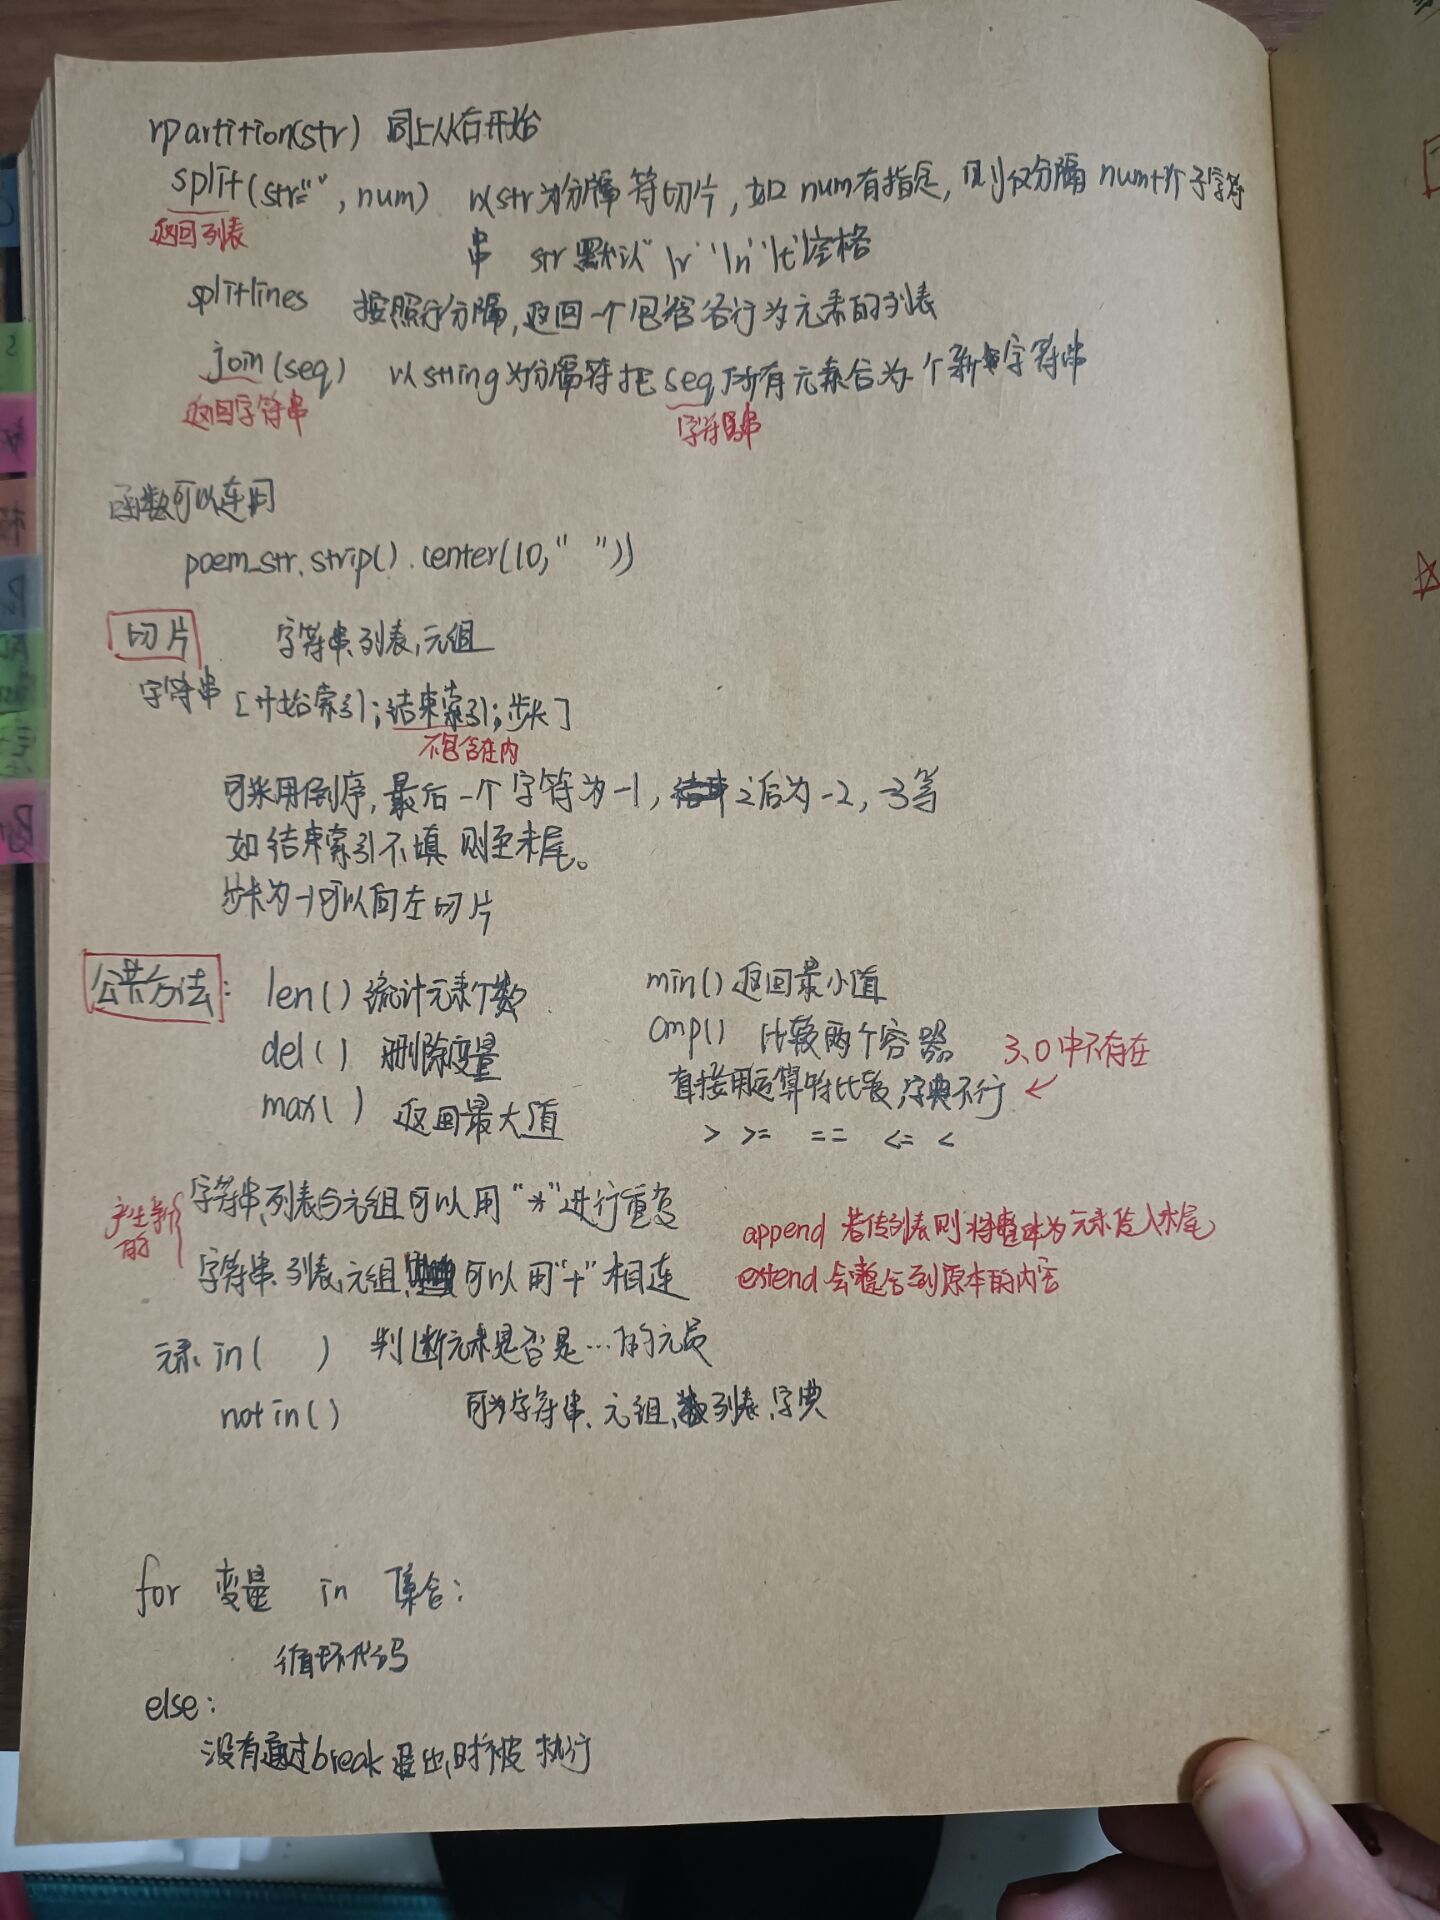 rpartition(str) 同上从后开始
split(str="", num) 以str为分隔符切片，如num有指定，则仅分隔 num+1个子字符
返回列表
串 str默认" \r' '\n' '\t'空格
splitlines 按照行分隔，返回一个包含各行为元素的列表
join(seq) 以string为分隔符把seq所有元素合为一个新字符串
返回字符串 字符串
函数可以连用
poem_str.strip().center(10," "))
切片 字符串、列表、元组
字符串 [开始索引;结束索引;步长]
不包含在内
可采用倒序，最后一个字符为-1，之后为-2，-3等
如结束索引不填 则至末尾。
步长为-1可以向左切片
公共方法：len() 统计元素个数 min()返回最小值
del() 删除变量 cmp() 比较两个容器 3.0中不存在
max() 返回最大值 直接用运算符比较，字典不行
> >= == <= <
产生新的
字符串、列表与元组可以用"*"进行重复
append 若传列表则将整体为元素传入末尾
字符串、列表、元组、可以用"+"相连
extend 会整合到原本的内容
元素 in( ) 判断元素是否是…的元员
not in() 可为字符串、元组、列表、字典
for 变量 in 集合：
循环代码
else：
没有通过break退出,时才被执行